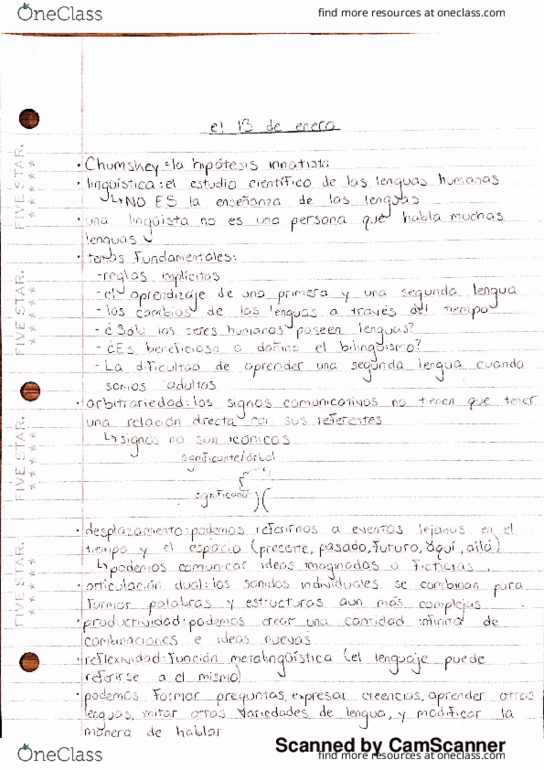 OneClass
find more resources at oneclass.com
el 13 de enero
FIVE STAR.
FIVE STAR.
FIVE STAR.
FIVE STAR.
• Chumskey = la hipótesis innatista
• lingüística: el estudio científico de las lenguas humanas
↳ NO ES la enseñanza de las lenguas
• una lingüista no es una persona que habla muchas
lenguas
• temas fundamentales:
- reglas implícitas
- el aprendizaje de una primera y una segunda lengua
- los cambios de las lenguas a través del tiempo
- ¿Solo los seres humanos poseen lenguas?
- ¿Es beneficioso o dañino el bilingüismo?
- La dificultad de aprender una segunda lengua cuando
somos adultos
• arbitrariedad: los signos comunicativos no tienen que tener
una relación directa con sus referentes
↳ signos no son icónicos
significante: árbol
significado:
• desplazamiento: podemos referirnos a eventos lejanos en el
tiempo y el espacio (presente, pasado, futuro, aquí, allá)
↳ podemos comunicar ideas imaginadas o ficticias.
• articulación dual: los sonidos individuales se combinan para
formar palabras y estructuras aun más complejas.
• productividad: podemos crear una cantidad infinita de
combinaciones e ideas nuevas
• reflexividad: función metalingüística (el lenguaje puede
referirse a el mismo)
• podemos formar preguntas, expresar creencias, aprender otras
lenguas, imitar otras variedades de lengua, y modificar la
manera de hablar
Scanned by CamScanner
OneClass
find more resources at oneclass.com